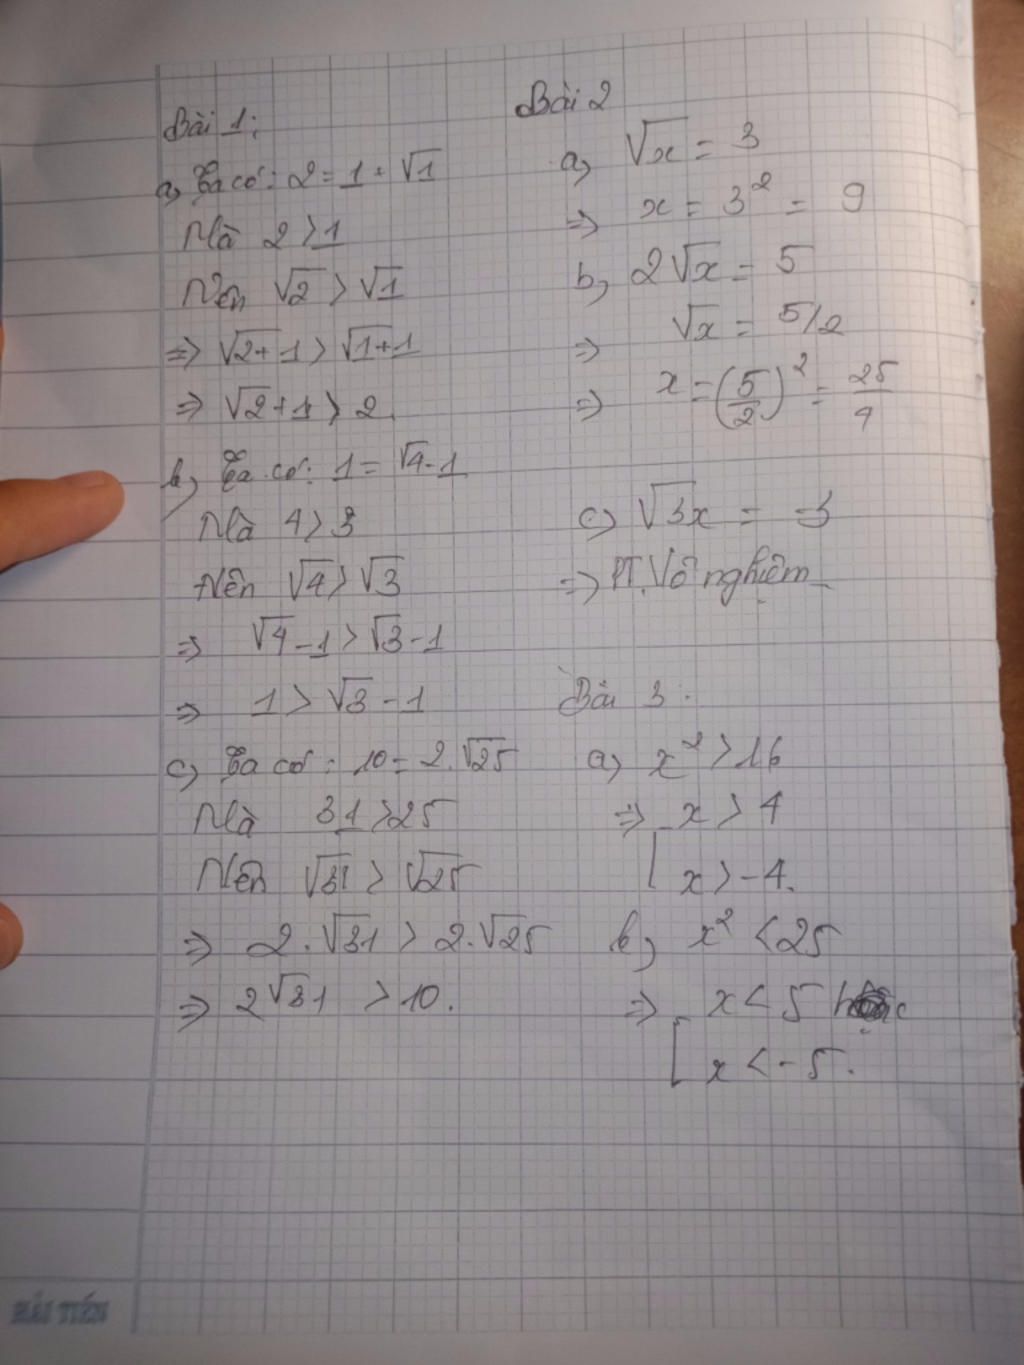 Bài 1:
a, Ta có: 2 = 1 + √1
Mà 2 > 1
Nên √2 > √1
=> √2 + 1 > √1 + 1
=> √2 + 1 > 2
b, Ta có: 1 = √4 - 1
Mà 4 > 3
Nên √4 > √3
=> √4 - 1 > √3 - 1
=> 1 > √3 - 1
c, Ta có: 10 = 2.√25
Mà 31 > 25
Nên √31 > √25
=> 2.√31 > 2.√25
=> 2√31 > 10.
Bài 2
a, √x = 3
=> x = 3² = 9
b, 2√x = 5
=> √x = 5/2
=> x = (5/2)² = 25/4
c, √3x = -3
=> PT Vô nghiệm
Bài 3:
a, x² > 16
=> [ x > 4
x > -4.
b, x² < 25
=> [ x < 5 hoặc
x < -5.
HẢI TIẾN